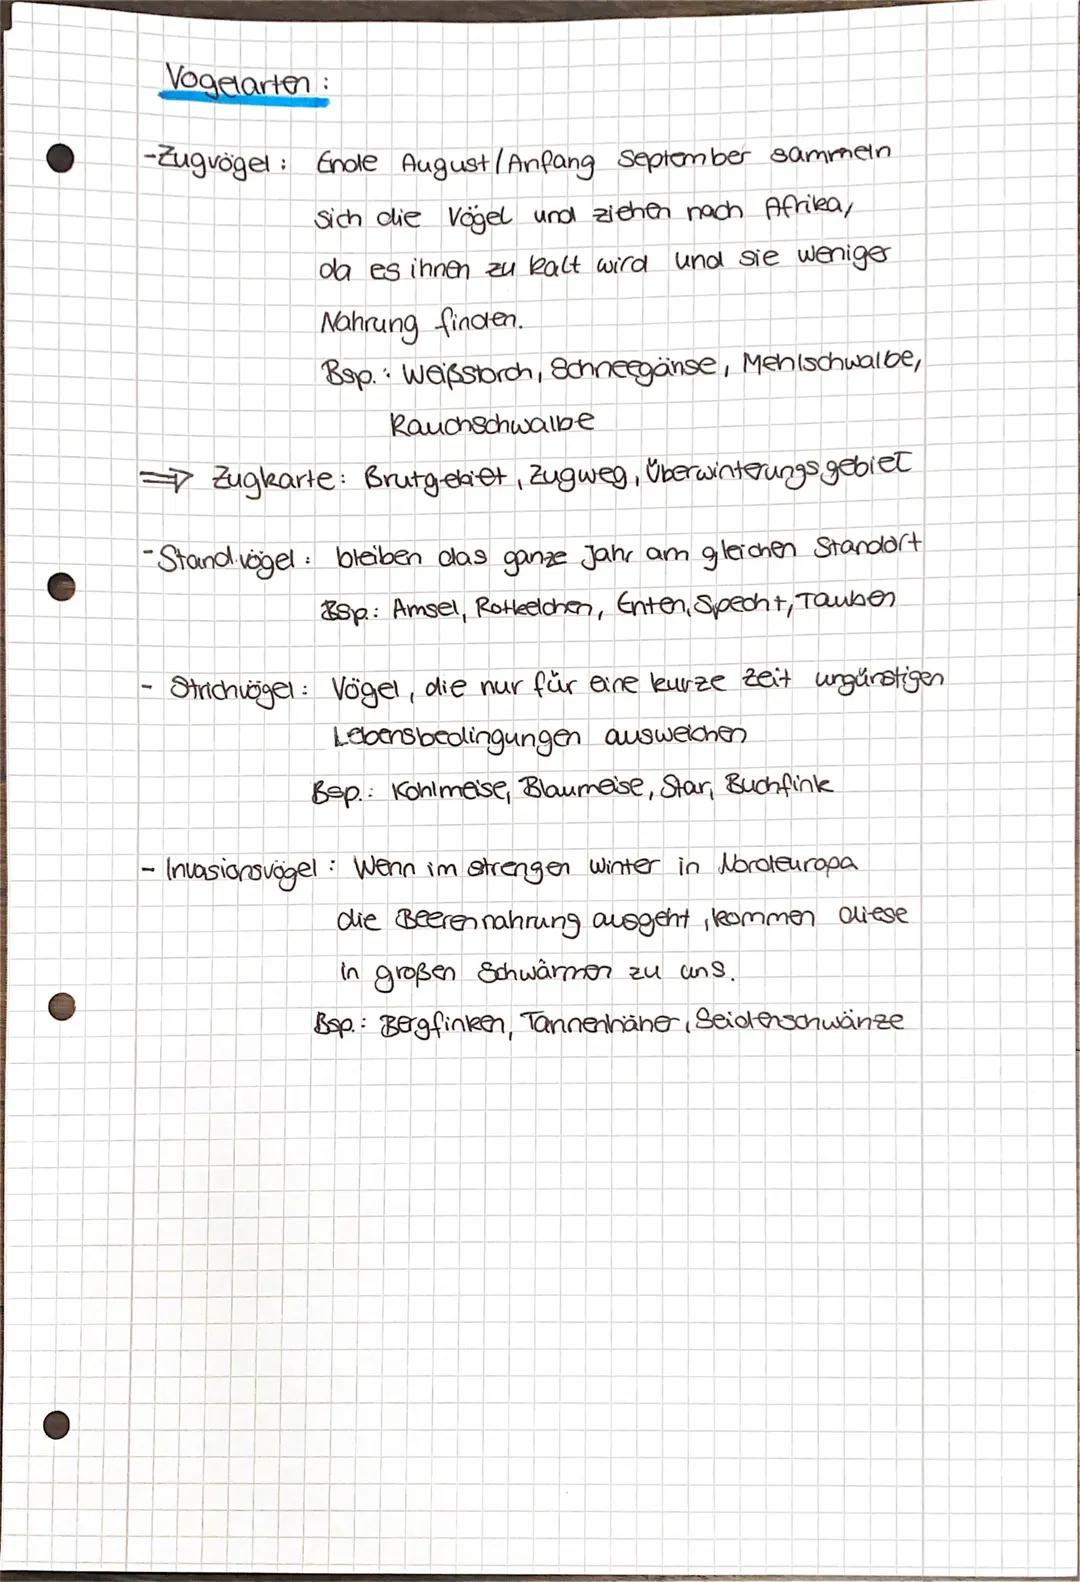 Vogelarten:
-Zugvögel: Ende August/Anfang September sammeln
sich die Vögel und ziehen nach Afrika,
da es ihnen zu kalt wird und sie weniger
Nahrung finden.
Bsp.: Weißstorch, Schneegänse, Mehlschwalbe,
Rauchschwalbe
⇒ Zugkarte: Brutgebiet, Zugweg, Überwinterungsgebiet
-Standvögel: bleiben das ganze Jahr am gleichen Standort
Bsp.: Amsel, Rotkelchen, Enten, Specht, Tauben
- Strichvögel: Vögel, die nur für eine kurze Zeit ungünstigen
Lebensbedingungen ausweichen
Bsp.: Kohlmeise, Blaumeise, Star, Buchfink
- Invasionsvögel: Wenn im strengen Winter in Nordeuropa
die Beerennahrung ausgeht, kommen diese
in großen Schwärmen zu uns.
Bsp.: Bergfinken, Tannenhäher, Seidenschwänze